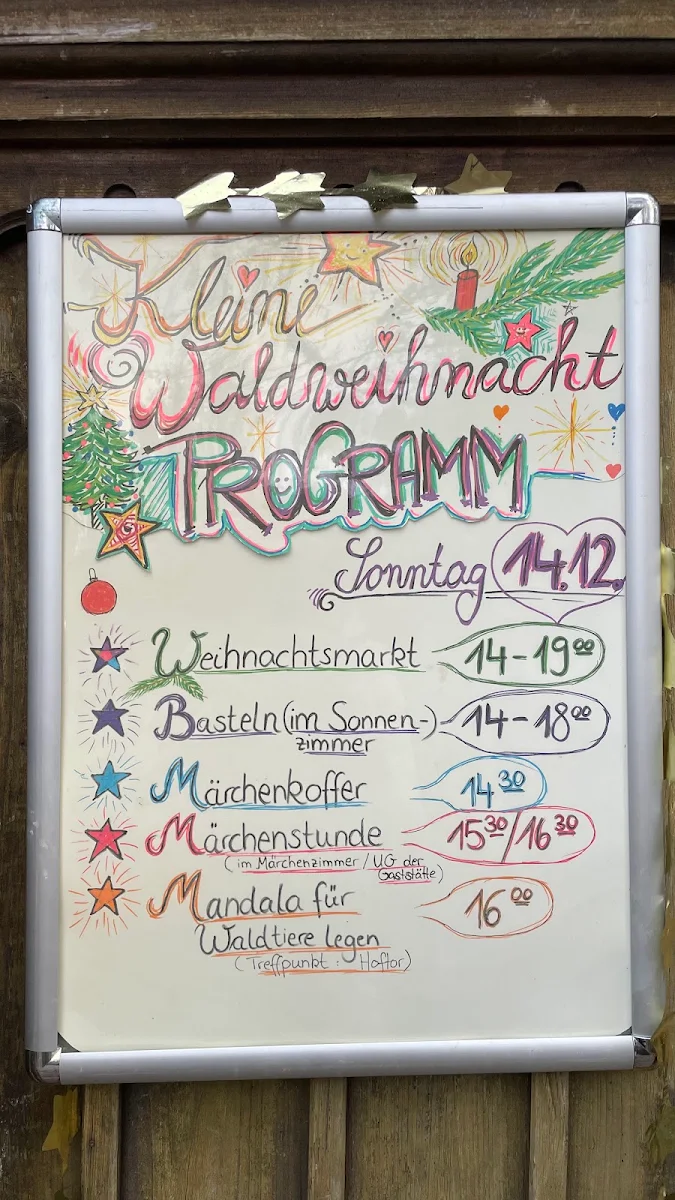 Kleine
Waldweihnacht
PROGRAMM
Sonntag 14.12.
Weihnachtsmarkt 14-19⁰⁰
Basteln (im Sonnen-) 14-18⁰⁰
zimmer
Märchenkoffer 14³⁰
Märchenstunde 15³⁰/16³⁰
(im Märchenzimmer / UG der
Gaststätte)
Mandala für 16⁰⁰
Waldtiere legen
(Treffpunkt: Hoftor)